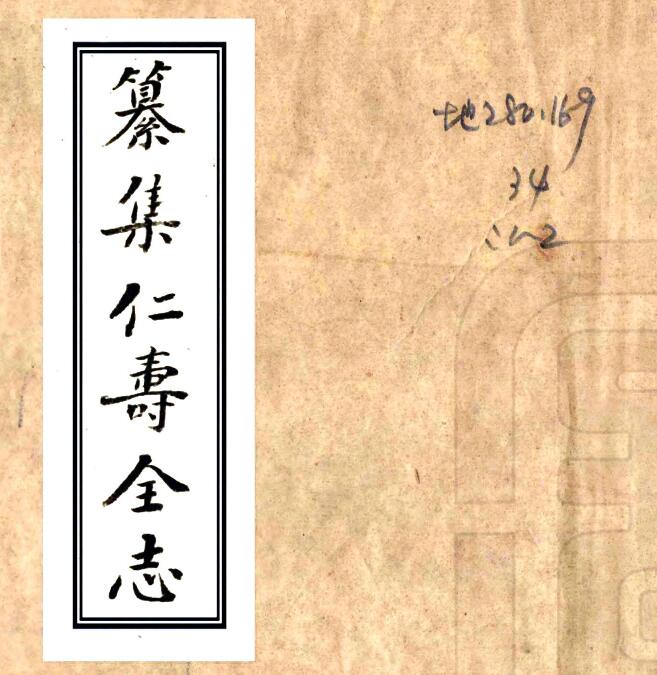 纂集仁壽全志
地280.169
34
:1~2